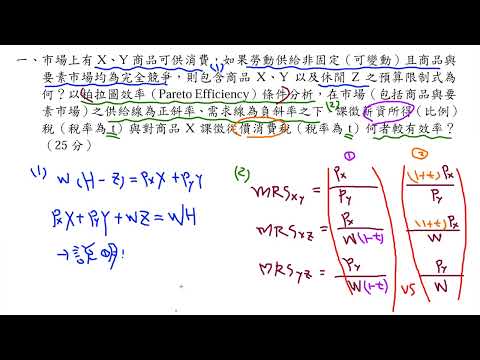 一、市場上有 X、Y 商品可供消費；如果勞動供給非固定（可變動）且商品與
要素市場均為完全競爭，則包含商品 X、Y 以及休閒 Z 之預算限制式為
何？以柏拉圖效率（Pareto Efficiency）條件分析，在市場（包括商品與要
素市場）之供給線為正斜率、需求線為負斜率之下，課徵薪資所得（比例）
稅（稅率為 t）與對商品 X 課徵從價消費稅（稅率為 t）何者較有效率？
（25 分）
(1)
(2)
(1) W(H-Z)=PxX+PyY
PxX+PyY+WZ=WH
→說明!
(2)
① ②
MRSxy = Px/Py (1+t)Px/Py
MRSxz = Px/W(1-t) (1+t)Px/W
MRSyz = Py/W(1-t) vs Py/W